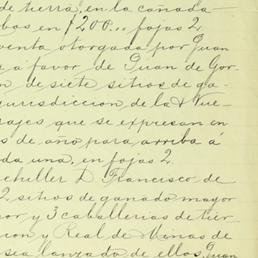 de tierra, en la cañada
bas en $200.. fojas 2
venta otorgada por Juan
a favor de Juan de Gor
n de siete sitios de ga
jurisdiccion de la
rajes que se expresan en
s de año para arriba á
da una, en fojas 2.
chiller D. Francisco de
2. sitios de ganado mayor
or, y 3 caballerias de tier
cion y Real de Minas de
sea lanzado de ellos Juan